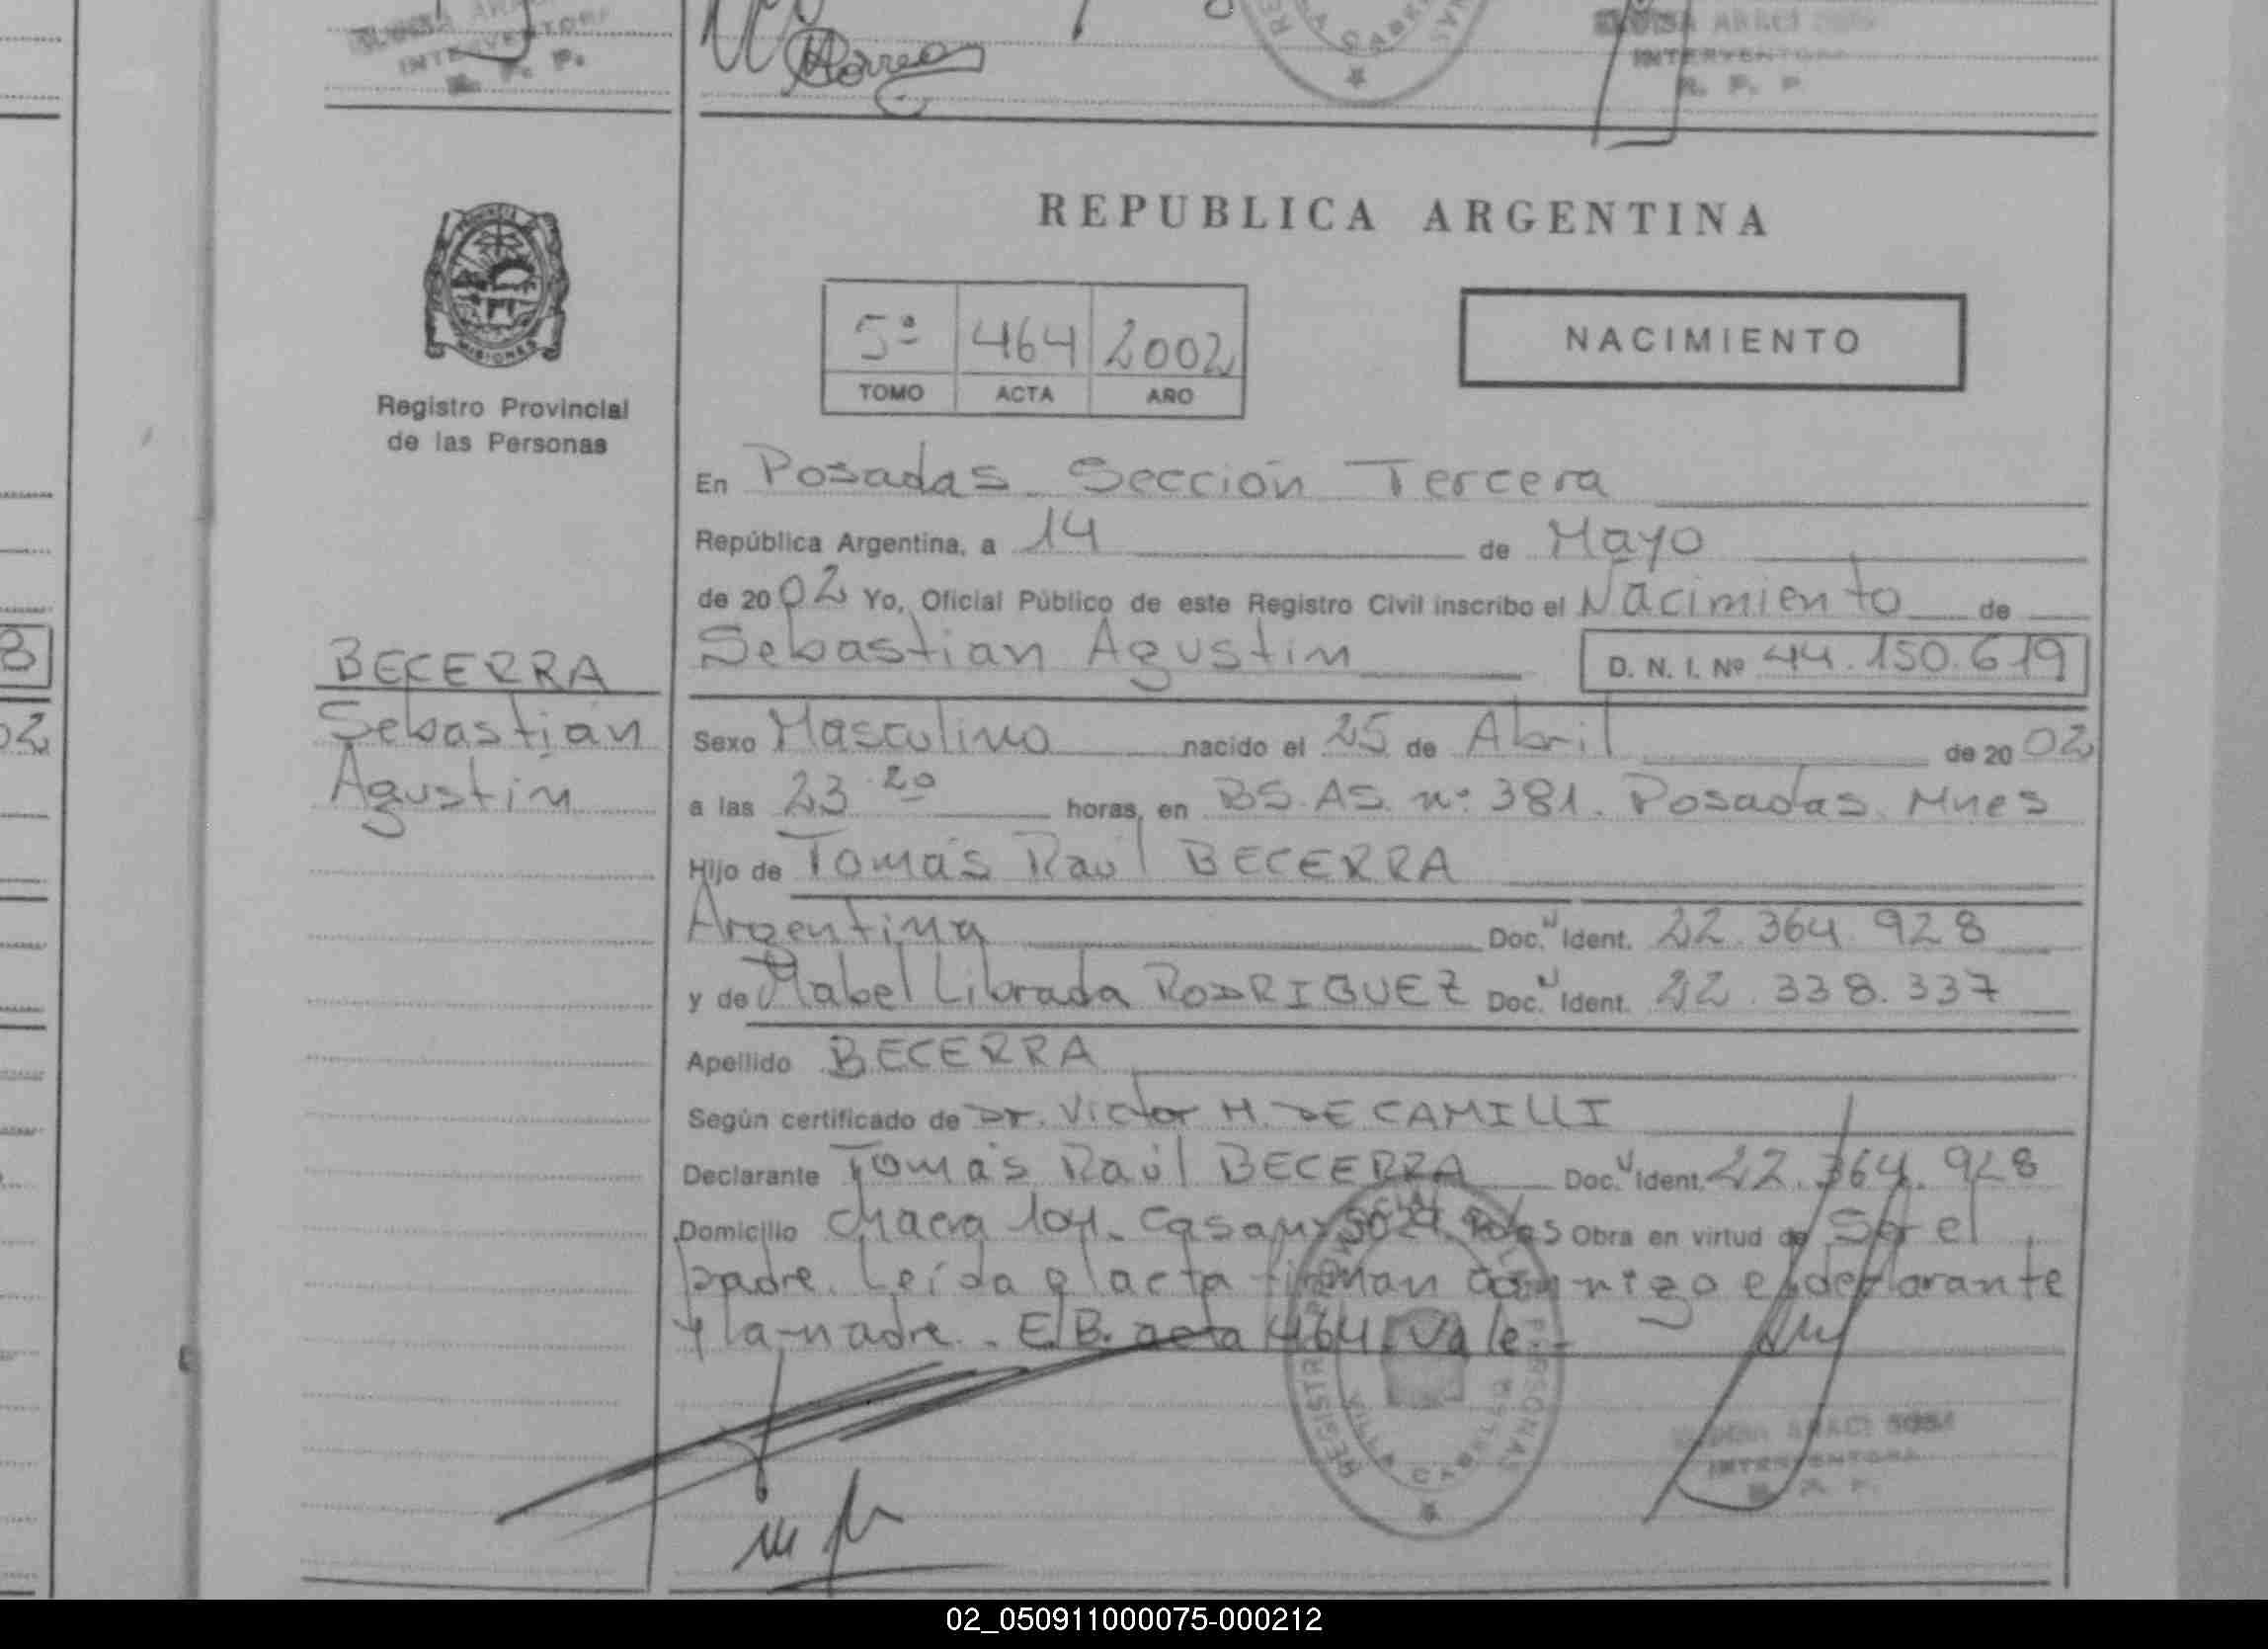 INTERVENTORA
R. P. P.
INTERVENTORA
R. P. P.
REPUBLICA ARGENTINA
MISIONES
Registro Provincial
de las Personas
5ª 464 2002
TOMO ACTA AÑO
NACIMIENTO
En Posadas Sección Tercera
República Argentina, a 14 de Mayo
de 2002 Yo, Oficial Público de este Registro Civil inscribo el Nacimiento de
Sebastian Agustin D. N. I. Nº 44.150.619
BECERRA
Sebastián
Agustín
Sexo Masculino nacido el 25 de Abril de 2002
a las 23.20 horas, en BS.AS. nº 381. Posadas Mnes
Hijo de Tomás Raúl BECERRA
Argentina Doc. Ident. 22.364.928
y de Mabel Librada RODRIGUEZ Doc. Ident. 22.338.337
Apellido BECERRA
Según certificado de Dr. Victor H. DE CAMILLI
Declarante Tomás Raúl BECERRA Doc. Ident. 22.364.928
Domicilio chacra 104. Casa Obra en virtud de Ser el
padre. Leída el acta firman conmigo el declarante
y la madre. E/B. acta 464. Vale.-
INTERVENTORA
02_050911000075-000212